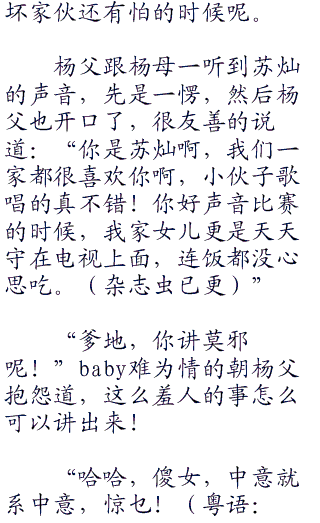 坏家伙还有怕的时候呢。
杨父跟杨母一听到苏灿
的声音，先是一愣，然后杨
父也开口了，很友善的说
道：“你是苏灿啊，我们一
家都很喜欢你啊，小伙子歌
唱的真不错！你好声音比赛
的时候，我家女儿更是天天
守在电视上面，连饭都没心
思吃。（杂志虫已更）”
“爹地，你讲莫邪
呢！”baby难为情的朝杨父
抱怨道，这么羞人的事怎么
可以讲出来！
“哈哈，傻女，中意就
系中意，惊乜！（粤语：